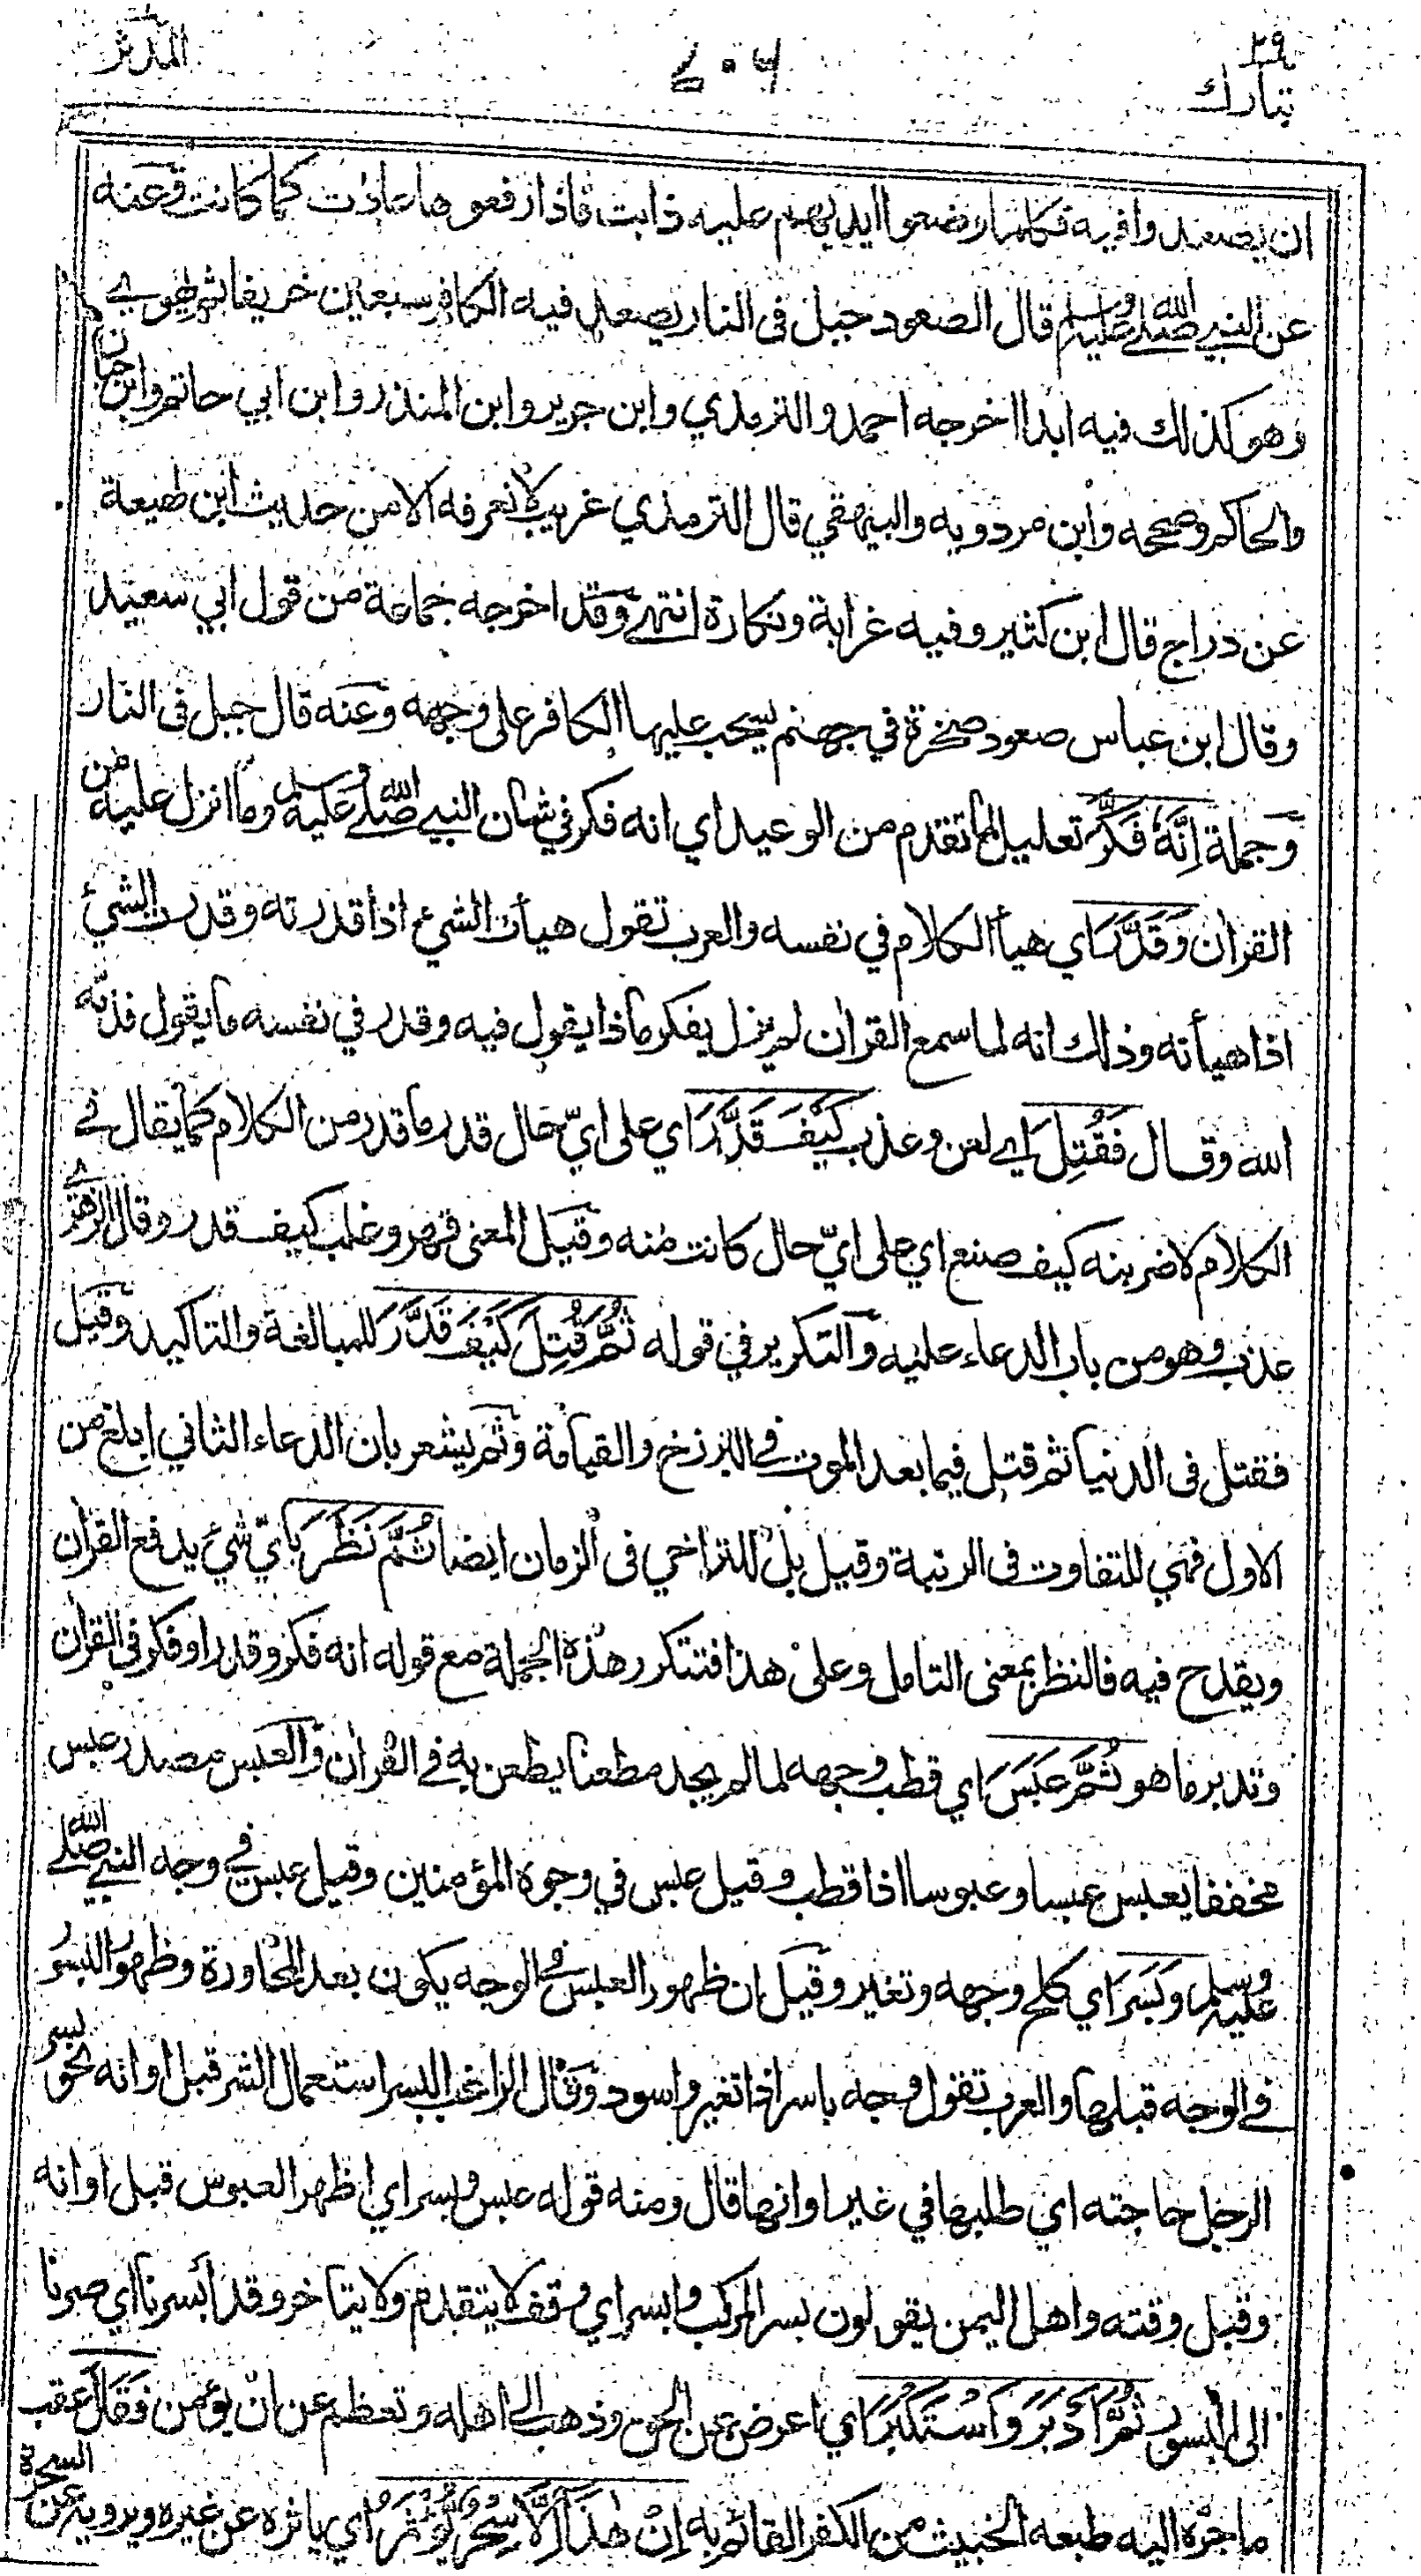 ٢٩
تبارك
المدثر
ان يصعد وافيه فكلما وضعوا ايديهم عليه ذابت فاذا رفعوها عادت كما كانت وعنه
عن النبي صلى الله عليه وسلم قال الصعود جبل فى النار يصعد فيه الكافر سبعين خريفا ثم يهوي
وهو كذلك فيه ابدا اخرجه احمد والترمذي وابن جرير وابن المنذر وابن ابي حاتم وابن حبان
والحاكم وصححه وابن مردويه والبيهقي قال الترمذي غريب لا نعرفه الا من حديث ابن لهيعة
عن دراج قال ابن كثير وفيه غرابة ونكارة انتهى وقد اخرجه جماعة من قول ابي سعيد
وقال ابن عباس صعود صخرة في جهنم يسحب عليها الكافر على وجهه وعنه قال جبل فى النار
وجملة اِنَّهٗ فَكَّرَ تعليل لما تقدم من الوعيد اي انه فكر في شان النبي صلى الله عليه وسلم وما انزل عليه من
القران وَقَدَّرَ اي هيأ الكلام في نفسه والعرب تقول هيأت الشيء اذا قدرته وقدرت الشيء
اذا هيأته وذلك انه لما سمع القران لم يزل يفكر ماذا يقول فيه وقدر في نفسه ما يقول فذمه
الله وقال فَقُتِلَ اي لعن وعذب كَيْفَ قَدَّرَ اي على ايّ حال قدر ما قدر من الكلام كما يقال في
الكلام لاضربنه كيف صنع اي على ايّ حال كانت منه وقيل المعنى قهر وغلب كيف قدر وقال الزهري
عذب وهو من باب الدعاء عليه والتكرير في قوله ثُمَّ قُتِلَ كَيْفَ قَدَّرَ للمبالغة والتاكيد وقيل
فقتل فى الدنيا ثم قتل فيما بعد الموت في البرزخ والقيامة وثم يشعر بان الدعاء الثاني ابلغ من
الاول فهي للتفاوت فى الرتبة وقيل بل للتراخي فى الزمان ايضا ثُمَّ نَظَرَ بايّ شيء يدفع القران
ويقدح فيه فالنظر بمعنى التامل وعلى هذا فتتكرر هذه الجملة مع قوله انه فكر وقدر او فكر في القران
وتدبر ما هو ثُمَّ عَبَسَ اي قطب وجهه لما لم يجد مطعنا يطعن به في القران والعبس مصدر عبس
مخففا يعبس عبسا وعبوسا اذا قطب وقيل عبس في وجوه المؤمنين وقيل عبس في وجه النبي صلى الله
عليه وسلم وَبَسَرَ اي كلح وجهه وتغير وقيل ان ظهور العبس في الوجه يكون بعد المحاورة وظهور البسور
في الوجه قبلها والعرب تقول وجه باسر اذا تغير واسود وقال الراغب البسر استعمال الشر قبل اوانه نحو بسر
الرجل حاجته اي طلبها في غير اوانها قال ومنه قوله عبس وبسر اي اظهر العبوس قبل اوانه
وقبل وقته واهل اليمن يقولون بسر المركب وابسر اي وقف لا يتقدم ولا يتاخر وقد ابسرنا اي صرنا
الى البسور ثُمَّ اَدْبَرَ وَاسْتَكْبَرَ اي اعرض عن الحق وذهب الى اهله وتعظم عن ان يؤمن فَقَالَ عقب
ما جره اليه طبعه الخبيث من الكفر القائم به اِنْ هٰذَآ اِلَّا سِحْرٌ يُّؤْثَرُ اي ياثره عن غيره ويرويه عن السحرة